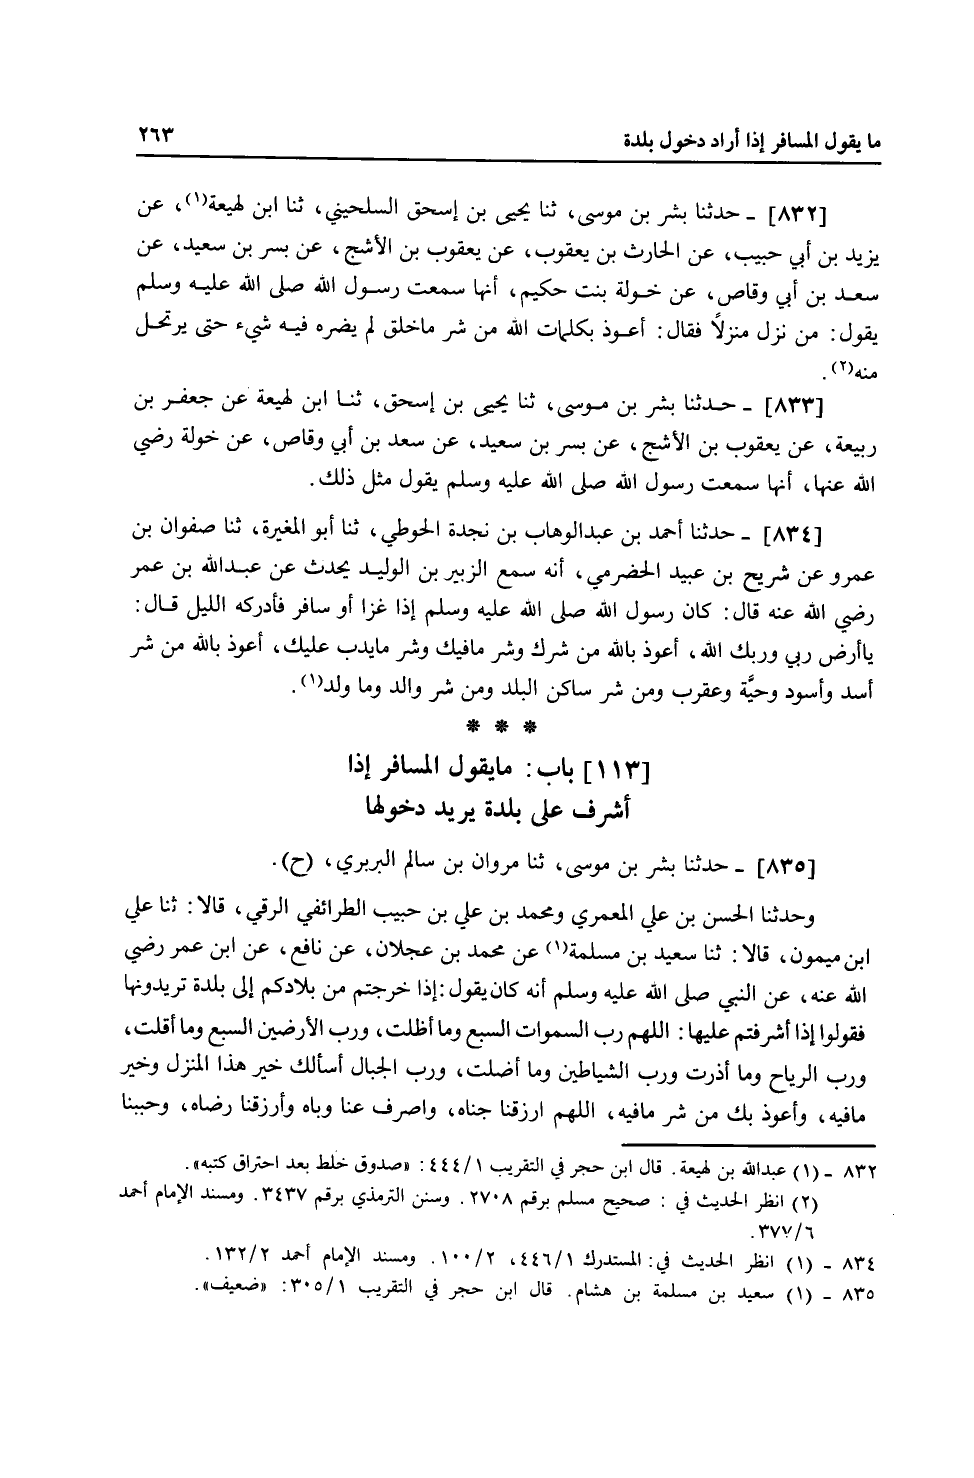 ما يقول المسافر إذا أراد دخول بلدة ٢٦٣
[٨٣٢] ـ حدثنا بشر بن موسى، ثنا يحيى بن إسحق السلحيني، ثنا ابن لهيعة(١)، عن
يزيد بن أبي حبيب، عن الحارث بن يعقوب، عن يعقوب بن الأشج، عن بسر بن سعيد، عن
سعد بن أبي وقاص، عن خولة بنت حكيم، أنها سمعت رسول الله صلى الله عليه وسلم
يقول: من نزل منزلاً فقال: أعوذ بكلمات الله من شر ماخلق لم يضره فيه شيء حتى يرتحل
منه(٢).
[٨٣٣] ـ حدثنا بشر بن موسى، ثنا يحيى بن إسحق، ثنا ابن لهيعة عن جعفر بن
ربيعة، عن يعقوب بن الأشج، عن بسر بن سعيد، عن سعد بن أبي وقاص، عن خولة رضي
الله عنها، أنها سمعت رسول الله صلى الله عليه وسلم يقول مثل ذلك.
[٨٣٤] ـ حدثنا أحمد بن عبدالوهاب بن نجدة الحوطي، ثنا أبو المغيرة، ثنا صفوان بن
عمرو عن شريح بن عبيد الحضرمي، أنه سمع الزبير بن الوليد يحدث عن عبدالله بن عمر
رضي الله عنه قال: كان رسول الله صلى الله عليه وسلم إذا غزا أو سافر فأدركه الليل قال:
ياأرض ربي وربك الله، أعوذ بالله من شرك وشر مافيك وشر مايدب عليك، أعوذ بالله من شر
أسد وأسود وحيَّة وعقرب ومن شر ساكن البلد ومن شر والد وما ولد(١).
* * *
[١١٣] باب: مايقول المسافر إذا
أشرف على بلدة يريد دخولها
[٨٣٥] ـ حدثنا بشر بن موسى، ثنا مروان بن سالم البربري، (ح).
وحدثنا الحسن بن علي المعمري ومحمد بن علي بن حبيب الطرائفي الرقي، قالا: ثنا علي
ابن ميمون، قالا: ثنا سعيد بن مسلمة(١) عن محمد بن عجلان، عن نافع، عن ابن عمر رضي
الله عنه، عن النبي صلى الله عليه وسلم أنه كان يقول: إذا خرجتم من بلادكم إلى بلدة تريدونها
فقولوا إذا أشرفتم عليها: اللهم رب السموات السبع وما أظلت، ورب الأرضين السبع وما أقلت،
ورب الرياح وما أذرت ورب الشياطين وما أضلت، ورب الجبال أسألك خير هذا المنزل وخير
مافيه، وأعوذ بك من شر مافيه، اللهم ارزقنا جناه، واصرف عنا وباه وأرزقنا رضاه، وحببنا
٨٣٢ ـ (١) عبدالله بن لهيعة. قال ابن حجر في التقريب ٤٤٤/١: «صدوق خلط بعد احتراق كتبه».
(٢) انظر الحديث في: صحيح مسلم برقم ٢٧٠٨. وسنن الترمذي برقم ٣٤٣٧. ومسند الإمام أحمد
٣٧٧/٦.
٨٣٤ ـ (١) انظر الحديث في: المستدرك ٤٤٦/١، ١٠٠/٢. ومسند الإمام أحمد ١٣٢/٢.
٨٣٥ ـ (١) سعيد بن مسلمة بن هشام. قال ابن حجر في التقريب ٣٠٥/١: «ضعيف».